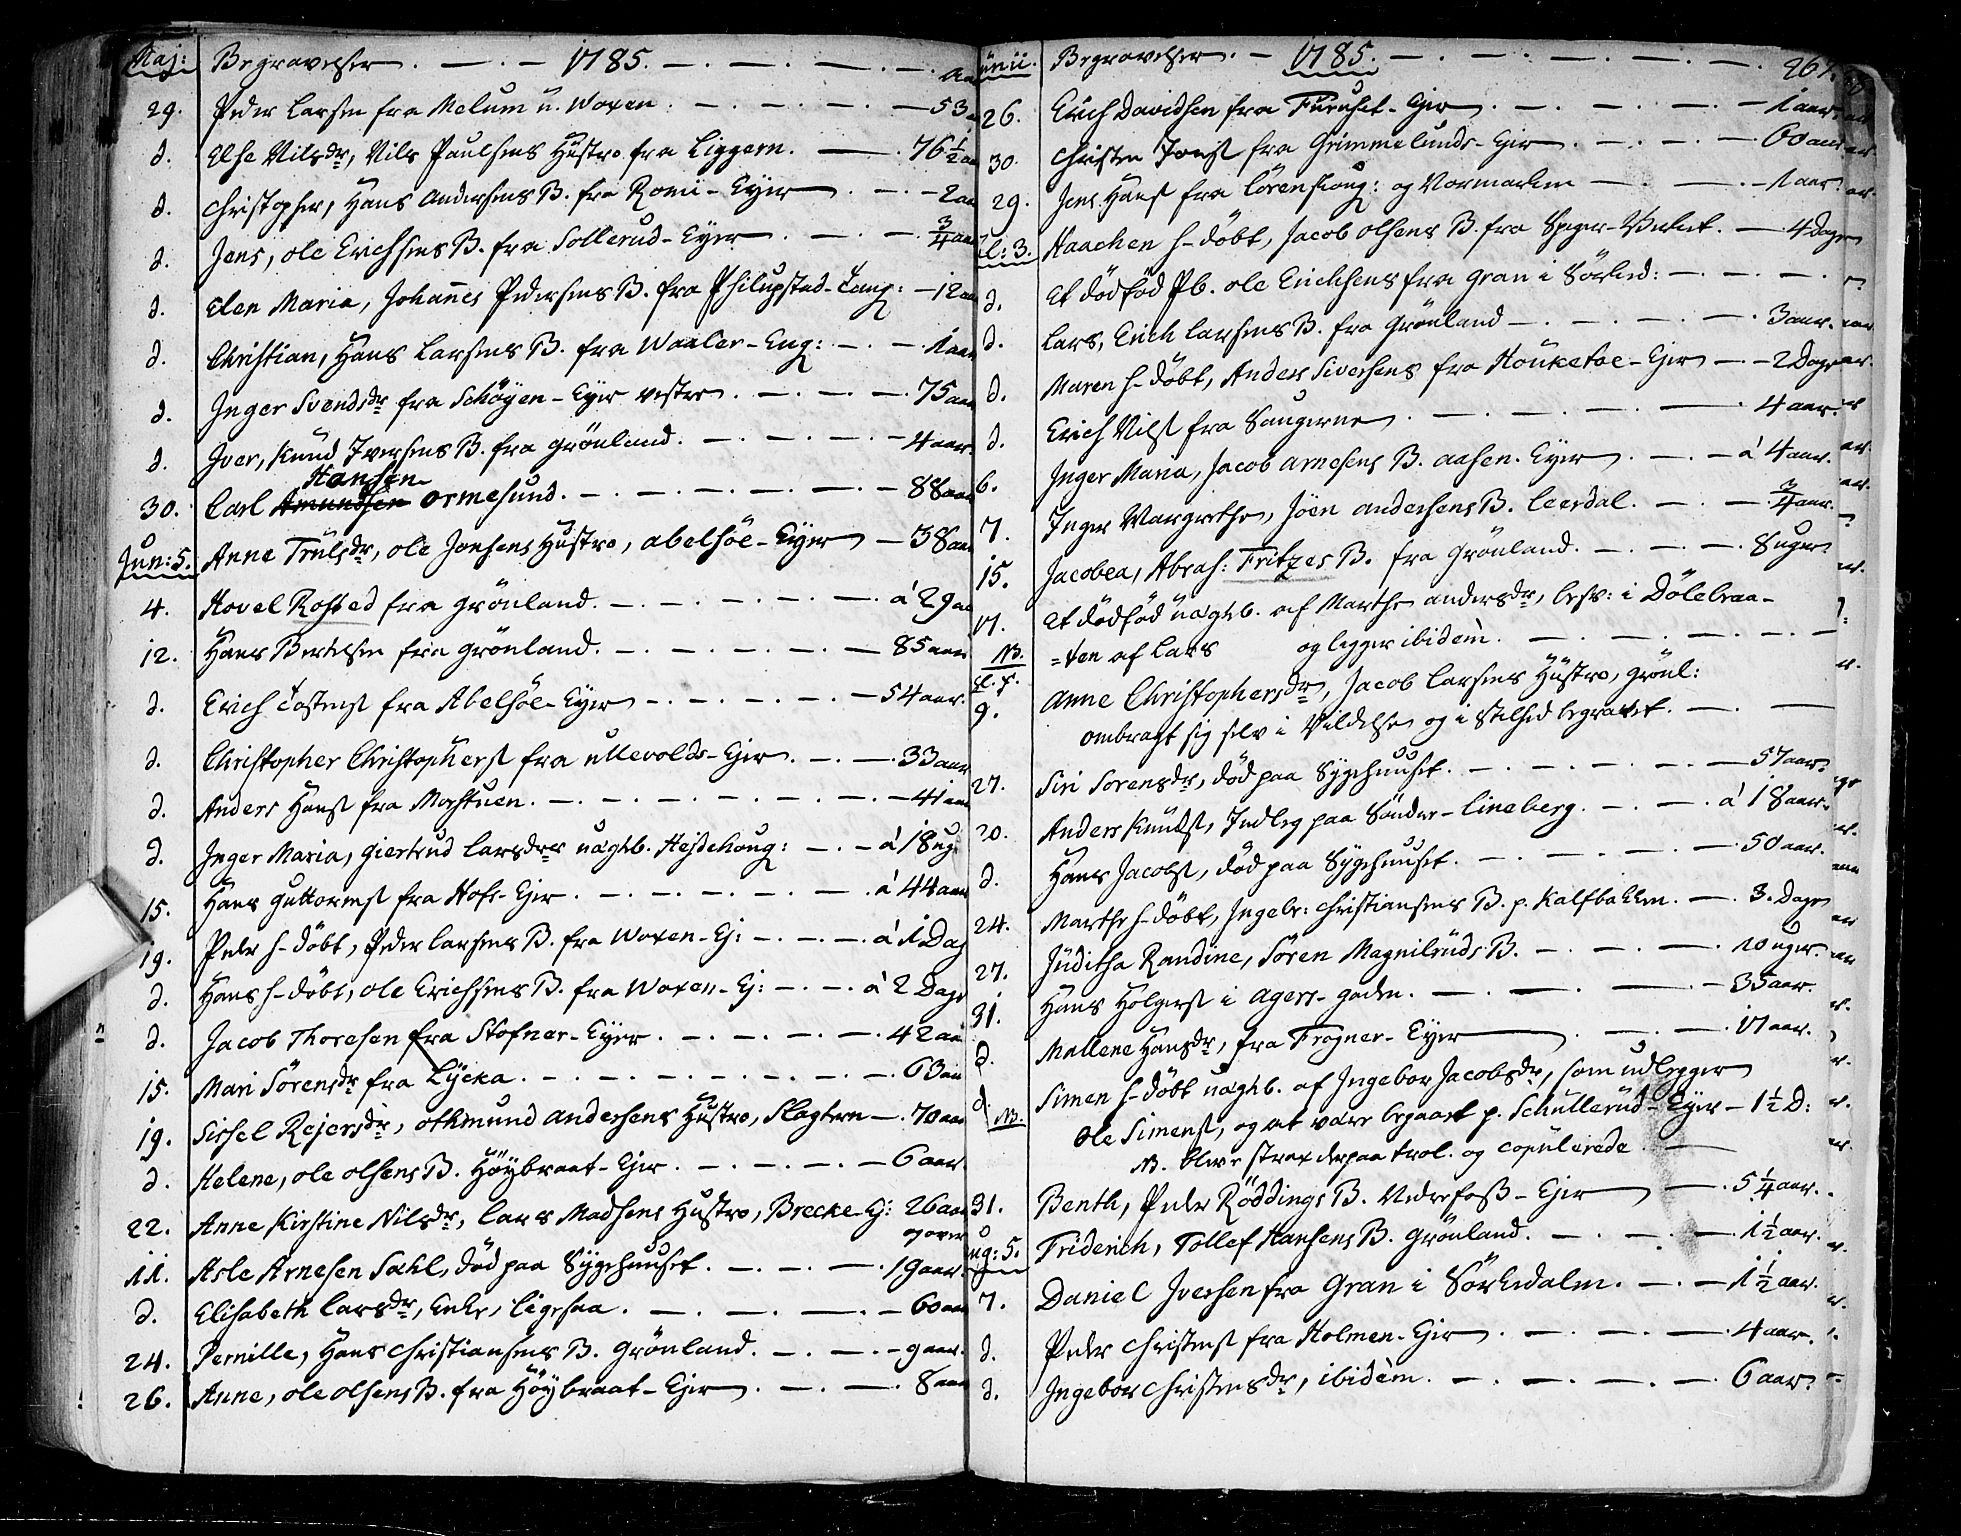 Maj: Begravelser. 1785. aar
29. Peder Larsen fra Melum u. Woxen. 53
d. Else Nilsdr, Nils Paulsens Hustro fra Liggern. 76 1/2 aar
d. Christopher, Hans Andersens B. fra Romü-Eyer 2 aar
d. Jens, Ole Erichsens B. fra Sollerud-Eyer 3/4 aar
d. Elen Maria, Johannes Pedersens B. fra Philupstad-Tang: 12 aar
d. Christian, Hans Larsens B. fra Waaler-Eng: 1 aar
d. Inger Svendsdr fra Schöyen-Eyer vestre. 75 aar
d. Iver, Knud Iversens B. fra Grönland. 4 aar.
30. Carl Amundsen Hansen Ormesund. 88 aar
Jun: 5. Anne Trulsdr, Ole Jonsens Hustro, Abelsöe-Eyer 38 aar
4. Hovel Rosted fra Grönland. á 29 aar
12. Hans Bertelsen fra Grönland. 85 aar
d. Erich Tostens fra Abelsöe-Eyer 54 aar.
d. Christopher Christophers fra Ullevolds-Ejer. 33 aar
d. Anders Hans fra Mostuen. 41 aar
d. Inger Maria, Giertrud Larsdrs uægtb. Hejdehoug: á 18 ug.
15. Hans Guttorms fra Hofs-Ejer. á 44 aar
19. Peder h-döbt, Peder Larsens B. fra Woxen-Ej: á 1 Dag
d. Hans h-döbt, Ole Erichsens B. fra Woxen-Ej: á 2 Dage
d. Jacob Thoresen fra Stofner-Eyer. 42 aar
15. Mari Sörensdr fra Lycka. 63 aar
19. Sissel Rejersdr, Othmund Andersens Hustro, Slagtern 70 aar
d. Helene, Ole Olsens B. Höybraat-Ejer. 6 aar.
22. Anne Kirstine Nilsdr, Lars Madsens Hustro, Brecke-Ej: 26 aar
11. Asle Arnesen Sahl, död paa Sygehuuset. 19 aar.
d. Elisabeth Larsdr, Enke, ligesaa. 60 aar
24. Pernille, Hans Christiansens B. Grönland. 9 aar.
26. Anne, Ole Olsens B. fra Höybraat-Ejer 8 aar
unii. Begravelser. 1785. 267.
26. Erich Davidsen fra Furuset-Ejer 1 aar.
30. Christen Jons fra Grimmelunds-Ejer 60 aar
29. Jens Hans fra Lörenskoug: og Normarken 1 aar.
ul: 3. Haachen h-döbt, Jacob Olsens B. fra Spiger-Verket. 4 Dage
d. Et dödföd Pb. Ole Erichsens fra Gran i Sörked:
d. Lars, Erich Larsens B. fra Grönland 3 aar.
d. Maren h-döbt, Anders Siversens fra Houketoe-Ejer 2 Dage
d. Erich Nils fra Saugerne 4 aar.
6. Inger Maria, Jacob Arnesens B. Aasen-Eyer á 4 aar.
7. Inger Margrethe, Jöen Andersens B. Leerdal. 3/4 aar.
15. Jacobea, Abrah: Fritzes B. fra Grönland. 8 uger
17. Et dödföd uægtb. af Marthe Andersdr, besv: i Dölebraa-
NB. =ten af Lars og ligger ibidèm.
9. Anne Christophersdr, Jacob Larsens Hustro, Grönl:
ombragt sig selv i Vildelse og i Stilhed begravet.
27. Siri Sorensdr, död paa Sygehuuset. 57 aar.
20. Anders Knuds, Indleg paa Sönder-Lineberg. á 18 aar.
d. Hans Jacobs, död paa Sygehuuset. 50 aar.
24. Marthe h-döbt, Ingebr: Christiansens B. p. Kalfbakken. 3. Dage
27. Juditha Randine, Sören Magnilruds B. 10 uger.
31. Hans Holgers i Agers-gaden. 35 aar.
d. Mallene Hansdr, fra Frogner-Eyer 17 aar.
d. Simen h-döbt uægtb. af Ingebor Jacobsdr, som udlegger
NB. Ole Simens, og at være begaaet p. Schullerud-Eyer 1 1/2 D:
NB. bleve strax derpaa trol. og copulerede
31. Benth, Peder Röddings B. Nedrefoss-Ejer 5 1/4 aar.
ug: 5. Friderich, Tollef Hansens B. Grönland. 1 1/2 aar.
7. Daniel Iversen fra Gran i Sörkedalen. 1 1/2 aar.
d. Peder Christens fra Holmen-Ejer 4 aar.
d. Ingebor Christensdr, ibidèm. 6 aar.